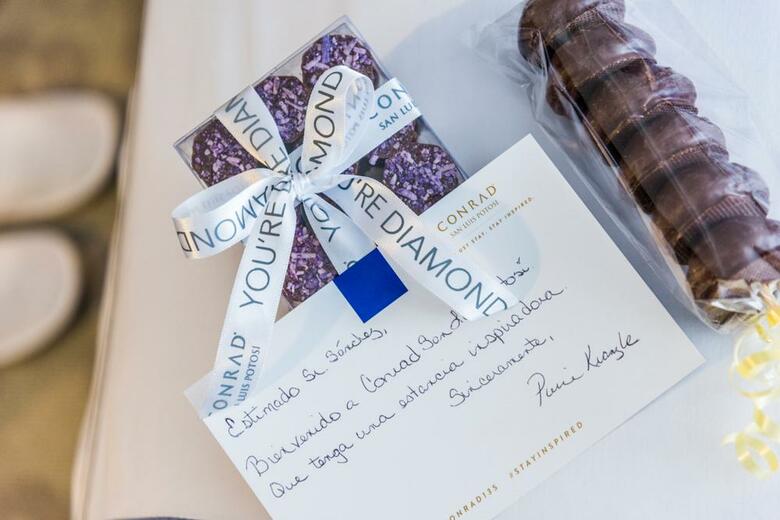 YOU'RE DIAMOND
CONRAD
SAN LUIS POTOSÍ
YOU'RE DIAMOND
CON
SAN LUI
CONRAD
SAN LUIS POTOSÍ
STAY. STAY INSPIRED.
Estimado Sr Sánchez,
Bienvenido a Conrad San
Que tenga una estancia inspiradora.
Sinceramente,
ONRAD135 #STAYINSPIRED